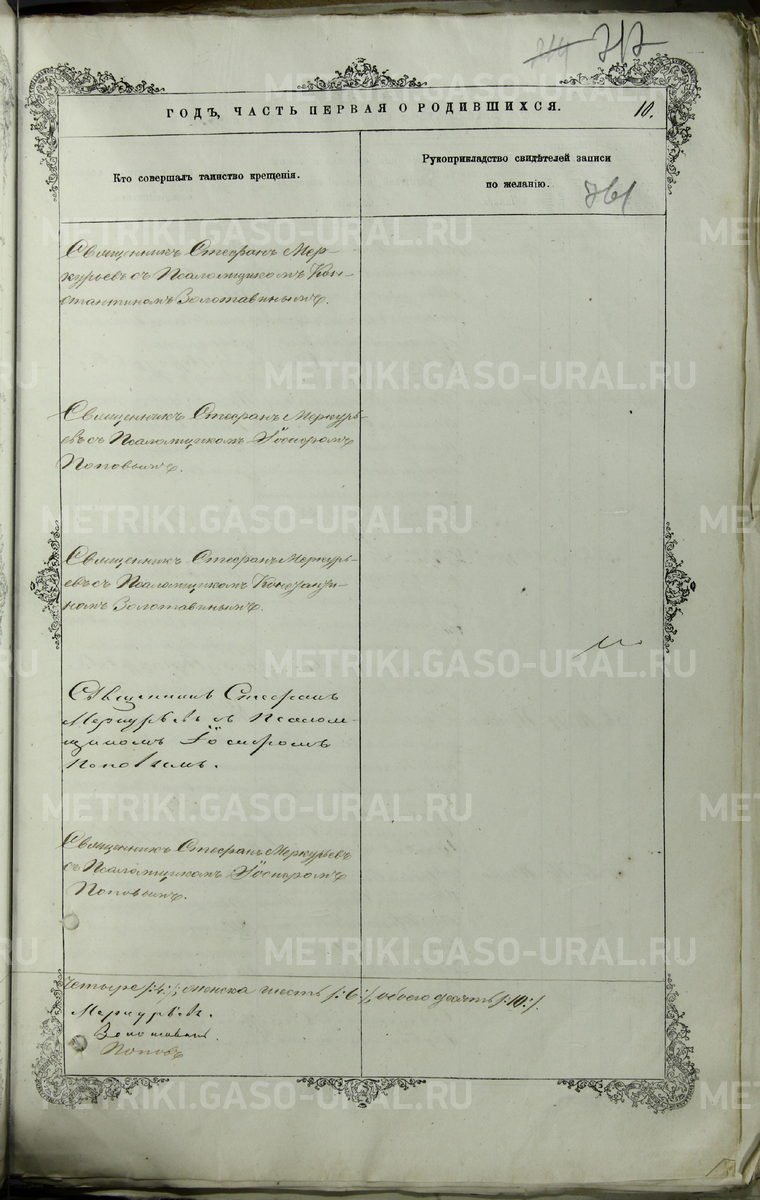 717
ГОДЪ, ЧАСТЬ ПЕРВАЯ О РОДИВШИХСЯ.
10.
Кто совершалъ таинство крещенія.
Рукоприкладство свидѣтелей записи
по желанію.
Священникъ Стефанъ Мер-
курьевъ съ Псаломщикомъ Кон-
стантиномъ Золотавинымъ.
Священникъ Стефанъ Меркурь-
евъ съ Псаломщикомъ Іосифомъ
Поповымъ.
Священникъ Стефанъ Меркурь-
евъ съ Псаломщикомъ Константи-
номъ Золотавинымъ.
Священникъ Стефанъ
Меркурьевъ съ Псалом-
щикомъ Іосифомъ
Поповымъ.
Священникъ Стефанъ Меркурьевъ
съ Псаломщикомъ Іосифомъ
Поповымъ.
Четыре /:4:/, женска шесть /:6:/, обоего десять /:10:/.
Меркурьевъ.
Золотавинъ
Поповъ
METRIKI.GASO-URAL.RU